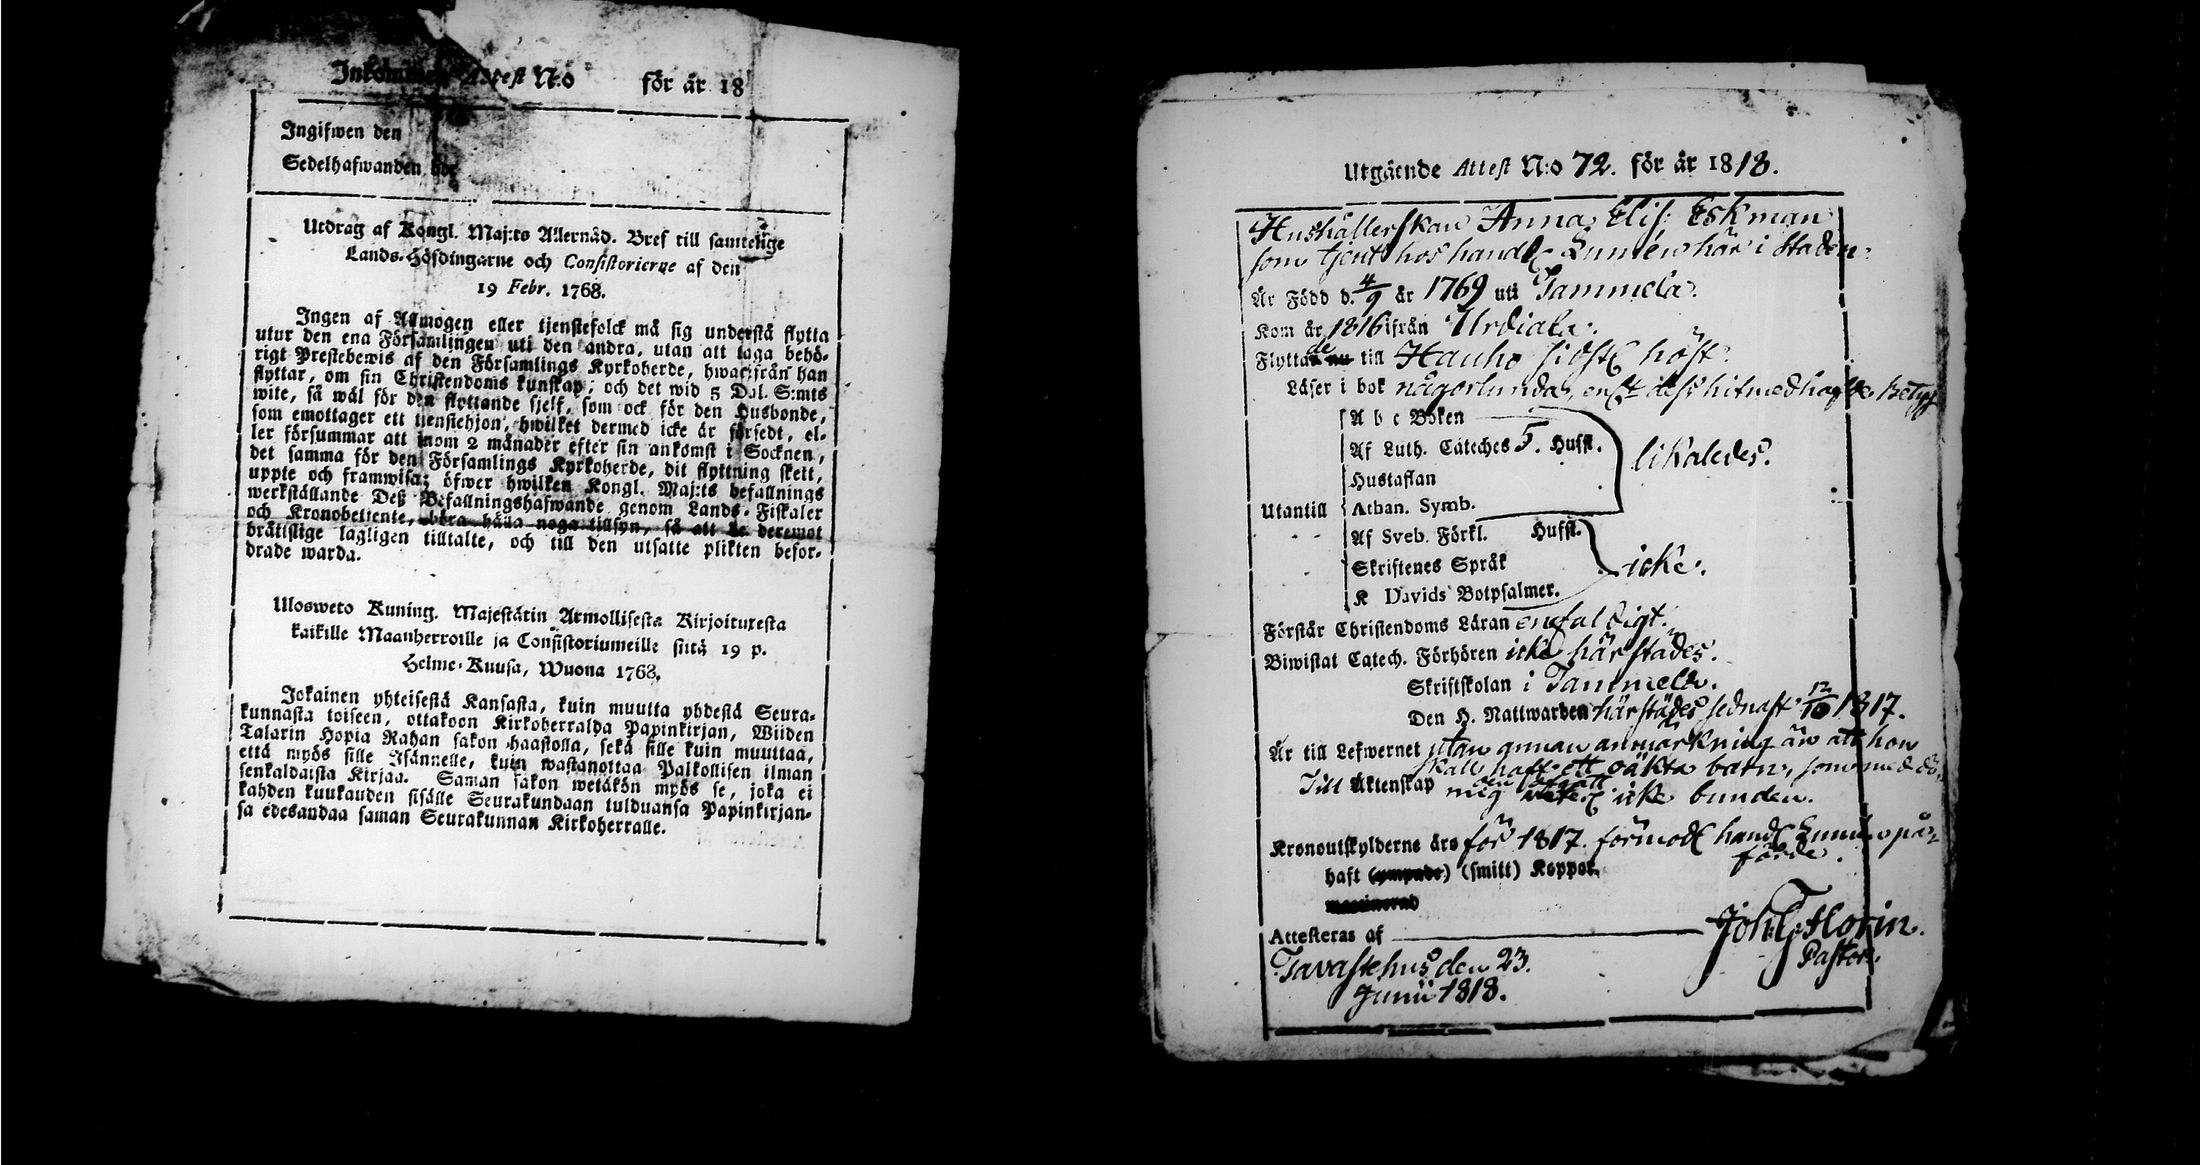 Inkommen Attest N:o för år 18
Ingifwen den
Sedelhafwanden bor
Utdrag af Kongl. Maj:ts Allernåd. Bref till samtelige
Lands-Höfdingarne och Consistorierne af den
19 Febr. 1768.
Ingen af Allmogen eller tjenstefolck må sig understå flytta
utur den ena Församlingen uti den andra, utan att taga behö-
rigt Prestebewis af den Församlings Kyrkoherde, hwarifrån han
flyttar, om sin Christendoms kunskap; och det wid 5 Dal. S:mts
wite, så wäl för den flyttande sjelf, som ock för den Husbonde,
som emottager ett tjenstehjon, hwilket dermed icke är försedt, el-
ler försummar att inom 2 månader efter sin ankomst i Socknen,
det samma för den Församlings Kyrkoherde, dit flyttning skett,
uppte och framwisa; öfwer hwilken Kongl. Maj:ts befallnings
werkställande Deß Befallningshafwande genom Lands-Fiskaler
och Kronobetjente, böra hålla noga tillsyn, så att de deremot
brätislige lagligen tilltalte, och till den utsatte plikten befor-
drade warda.
Ulosweto Kuning. Majestätin Armollisesta Kirjoituxesta
kaikille Maanherroille ja Consistoriumeille siitä 19 p.
Helme-Kuusa, Wuona 1768.
Jokainen yhteisestä Kansasta, kuin muutta yhdestä Seura-
kunnasta toiseen, ottakoon Kirkoherralda Papinkirjan, Wiiden
Talarin Hopia Rahan sakon haastolla, sekä sille kuin muuttaa,
että myös sille Isännelle, kuin wastanottaa Palkollisen ilman
senkaldaista Kirjaa. Saman sakon wetäkön myös se, joka ei
kahden kuukauden sisälle Seurakundaan tulduansa Papinkirjan-
sa edesandaa saman Seurakunnan Kirkoherralle.
Utgående Attest N:o 72. för år 1818.
Hushållerskan Anna Elis: Eskman
som tjent hos handl. här i staden.
Är Född d. 4/9 år 1769 uti Tammela.
Kom år 1816 ifrån Urdiala.
Flyttade till Hauho sidstl. höst.
Läser i bok någorlunda, enl:t dess hitmedhafde Betyg
A b c Boken
Af Luth. Cateches 5. Hufst. likaledes.
Hustaflan
Utantill Athan. Symb.
Af Sveb. Förkl. Hufst.
Skriftenes Språk icke.
K Davids Botpsalmer.
Förstår Christendoms Läran enfaldigt.
Biwistat Catech. Förhören icke härstädes.
Skriftskolan i Tammela.
Den H. Nattwarden härstädes sednast 12/10 1817.
Är till Lefwernet utan annan anmärkning än att hon
skall haft ett oäkta barn, som med dö,
Till Äktenskap mig icke bunden.
Kronoutskylderne äro för 1817. förmodl. handl. på-
förde.
haft (smitt) Koppor.
Attesteras af Joh: G: Florin.
Pastor.
Tavastehus den 23.
Junii 1818.